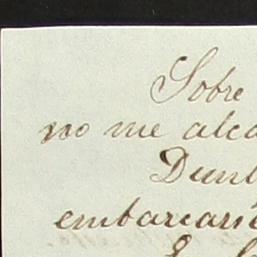 Sobre
no me alca
Dunl
embarcari